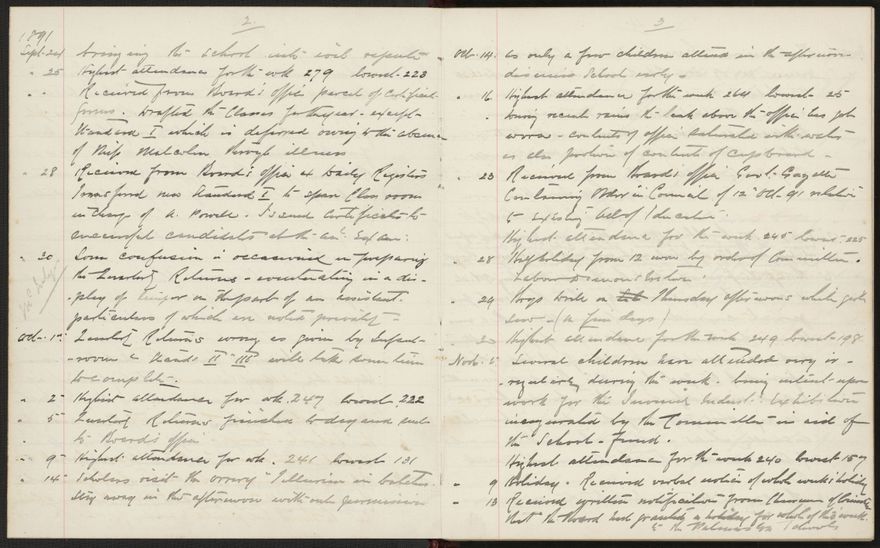 2.
1891
Sept. 24 bringing the school into evil repute
" 25 Highest attendance for the wk 279 lowest 223
" " Received from Board's Office parcel of Certificate
forms. Drafted the Classes for the year - except
Standard I which is deferred owing to the absence
of Miss Malcolm through illness
" 28 Received from Board's Office Daily Registers
Transferred new Standard I to spare Class room
in charge of A. Powell. Issued Certificates to
successful candidates at the Exam:
" 30 Some confusion is occasioned in preparing
the Quarterly Returns - in a dis-
-play of temper on the part of an assistant
particulars of which are noted privately -
Oct. 1st Quarterly Returns wrong as given by Infant-
-room & Stand II III will take some time
to complete -
" 2 Highest attendance for wk. 247 lowest 222
" 5 Quarterly Returns finished today and sent
to Board's office
" 9 Highest attendance for wk. 241 lowest 131
" 14 Scholars visit the
stay away in the afternoon without permission
3
Oct. 14. As only a few children attend in the afternoon
dismiss School early -
" 16 Highest attendance for the week 264 lowest 25
" During recent rains the leak above the office has got
worse - contents of office saturated with water
as also portion of contents of cupboard -
" 23 Received from Board's office Govt. Gazette
Containing Order in Council of 12 Oct. 91 relative
to Education
Highest attendance for the week 245 lowest 225
" 28 Half holiday from 12 noon by order of Committee.
Labour Demonstration.
" 29 Boys drill on Thursday afternoons while girls
sew - (a few days)
Highest attendance for the week 249 lowest 198
Novr. 5 Several children have attended very ir-
-regularly during the week. being intent upon
work for the Juvenile Indust: Exhibition
inaugurated by the Committee in aid of
the School - Fund.
Highest attendance for the week 240 lowest 157
" 9 Holiday. Received verbal notice of whole week's holiday
" 13 Received written notification from Chairman of
that the Board had granted a holiday for whole of this week.
to the Schools